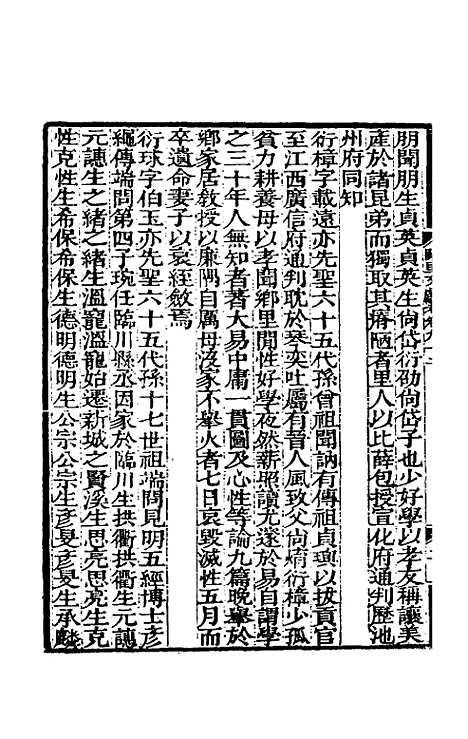 朋聞朋生貞英貞英生尙岱衍劭尙岱子也少好學以孝友稱讓美
產於諸昆弟而獨取其瘠陋者里人以比薛包授宣化府通判歷池
州府同知
衍樟字載遠亦先聖六十五代孫曾祖聞訥有傳祖貞瑱以拔貢官
至江西廣信府通判耽於琴奕吐屬有晉人風致父尙熵衍樟少孤
貧力耕養母以孝聞鄉里閒性好學夜然薪照讀尤邃於易自謂學
之三十年人無知者著大易中庸一貫圖及心性等論九篇晚舉於
鄉家居敎授以廉隅自厲母沒家不舉火者七日哀毀滅性五月而
卒遺命妻子以衰絰斂焉
衍球字伯玉亦先聖六十五代孫十七世祖端問見明五經博士彥
繩傳端問第四子琬任臨川縣丞因家於臨川生拱衢拱衢生元譓
元譓生之緒之緒生溫寵溫寵始遷新城之賢溪生思亮思亮生克
性克性生希保希保生德明德明生公宗公宗生彥旻彥旻生承麟